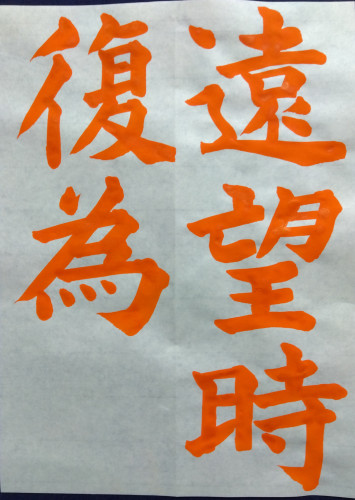 遠望時
復為